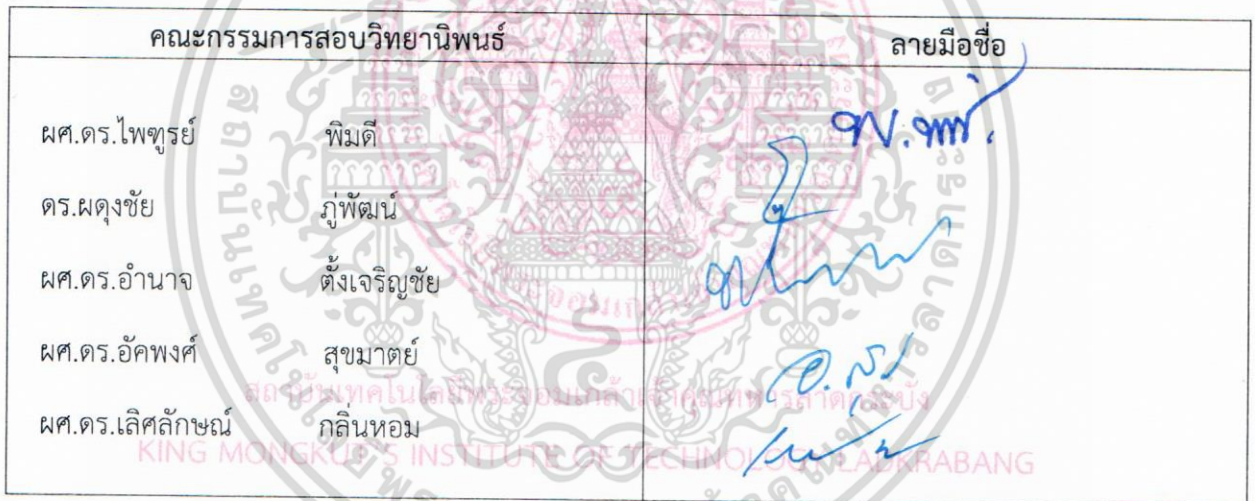 คณะกรรมการสอบวิทยานิพนธ์ ลายมือชื่อ
ผศ.ดร.ไพฑูรย์ พิมดี
ดร.ผดุงชัย ภู่พัฒน์
ผศ.ดร.อำนาจ ตั้งเจริญชัย
ผศ.ดร.อัคพงศ์ สุขมาตย์
สถาบันเทคโนโลยีพระจอมเกล้าเจ้าคุณทหารลาดกระบัง
ผศ.ดร.เลิศลักษณ์ กลิ่นหอม
KING MONGKUT'S INSTITUTE OF TECHNOLOGY LADKRABANG